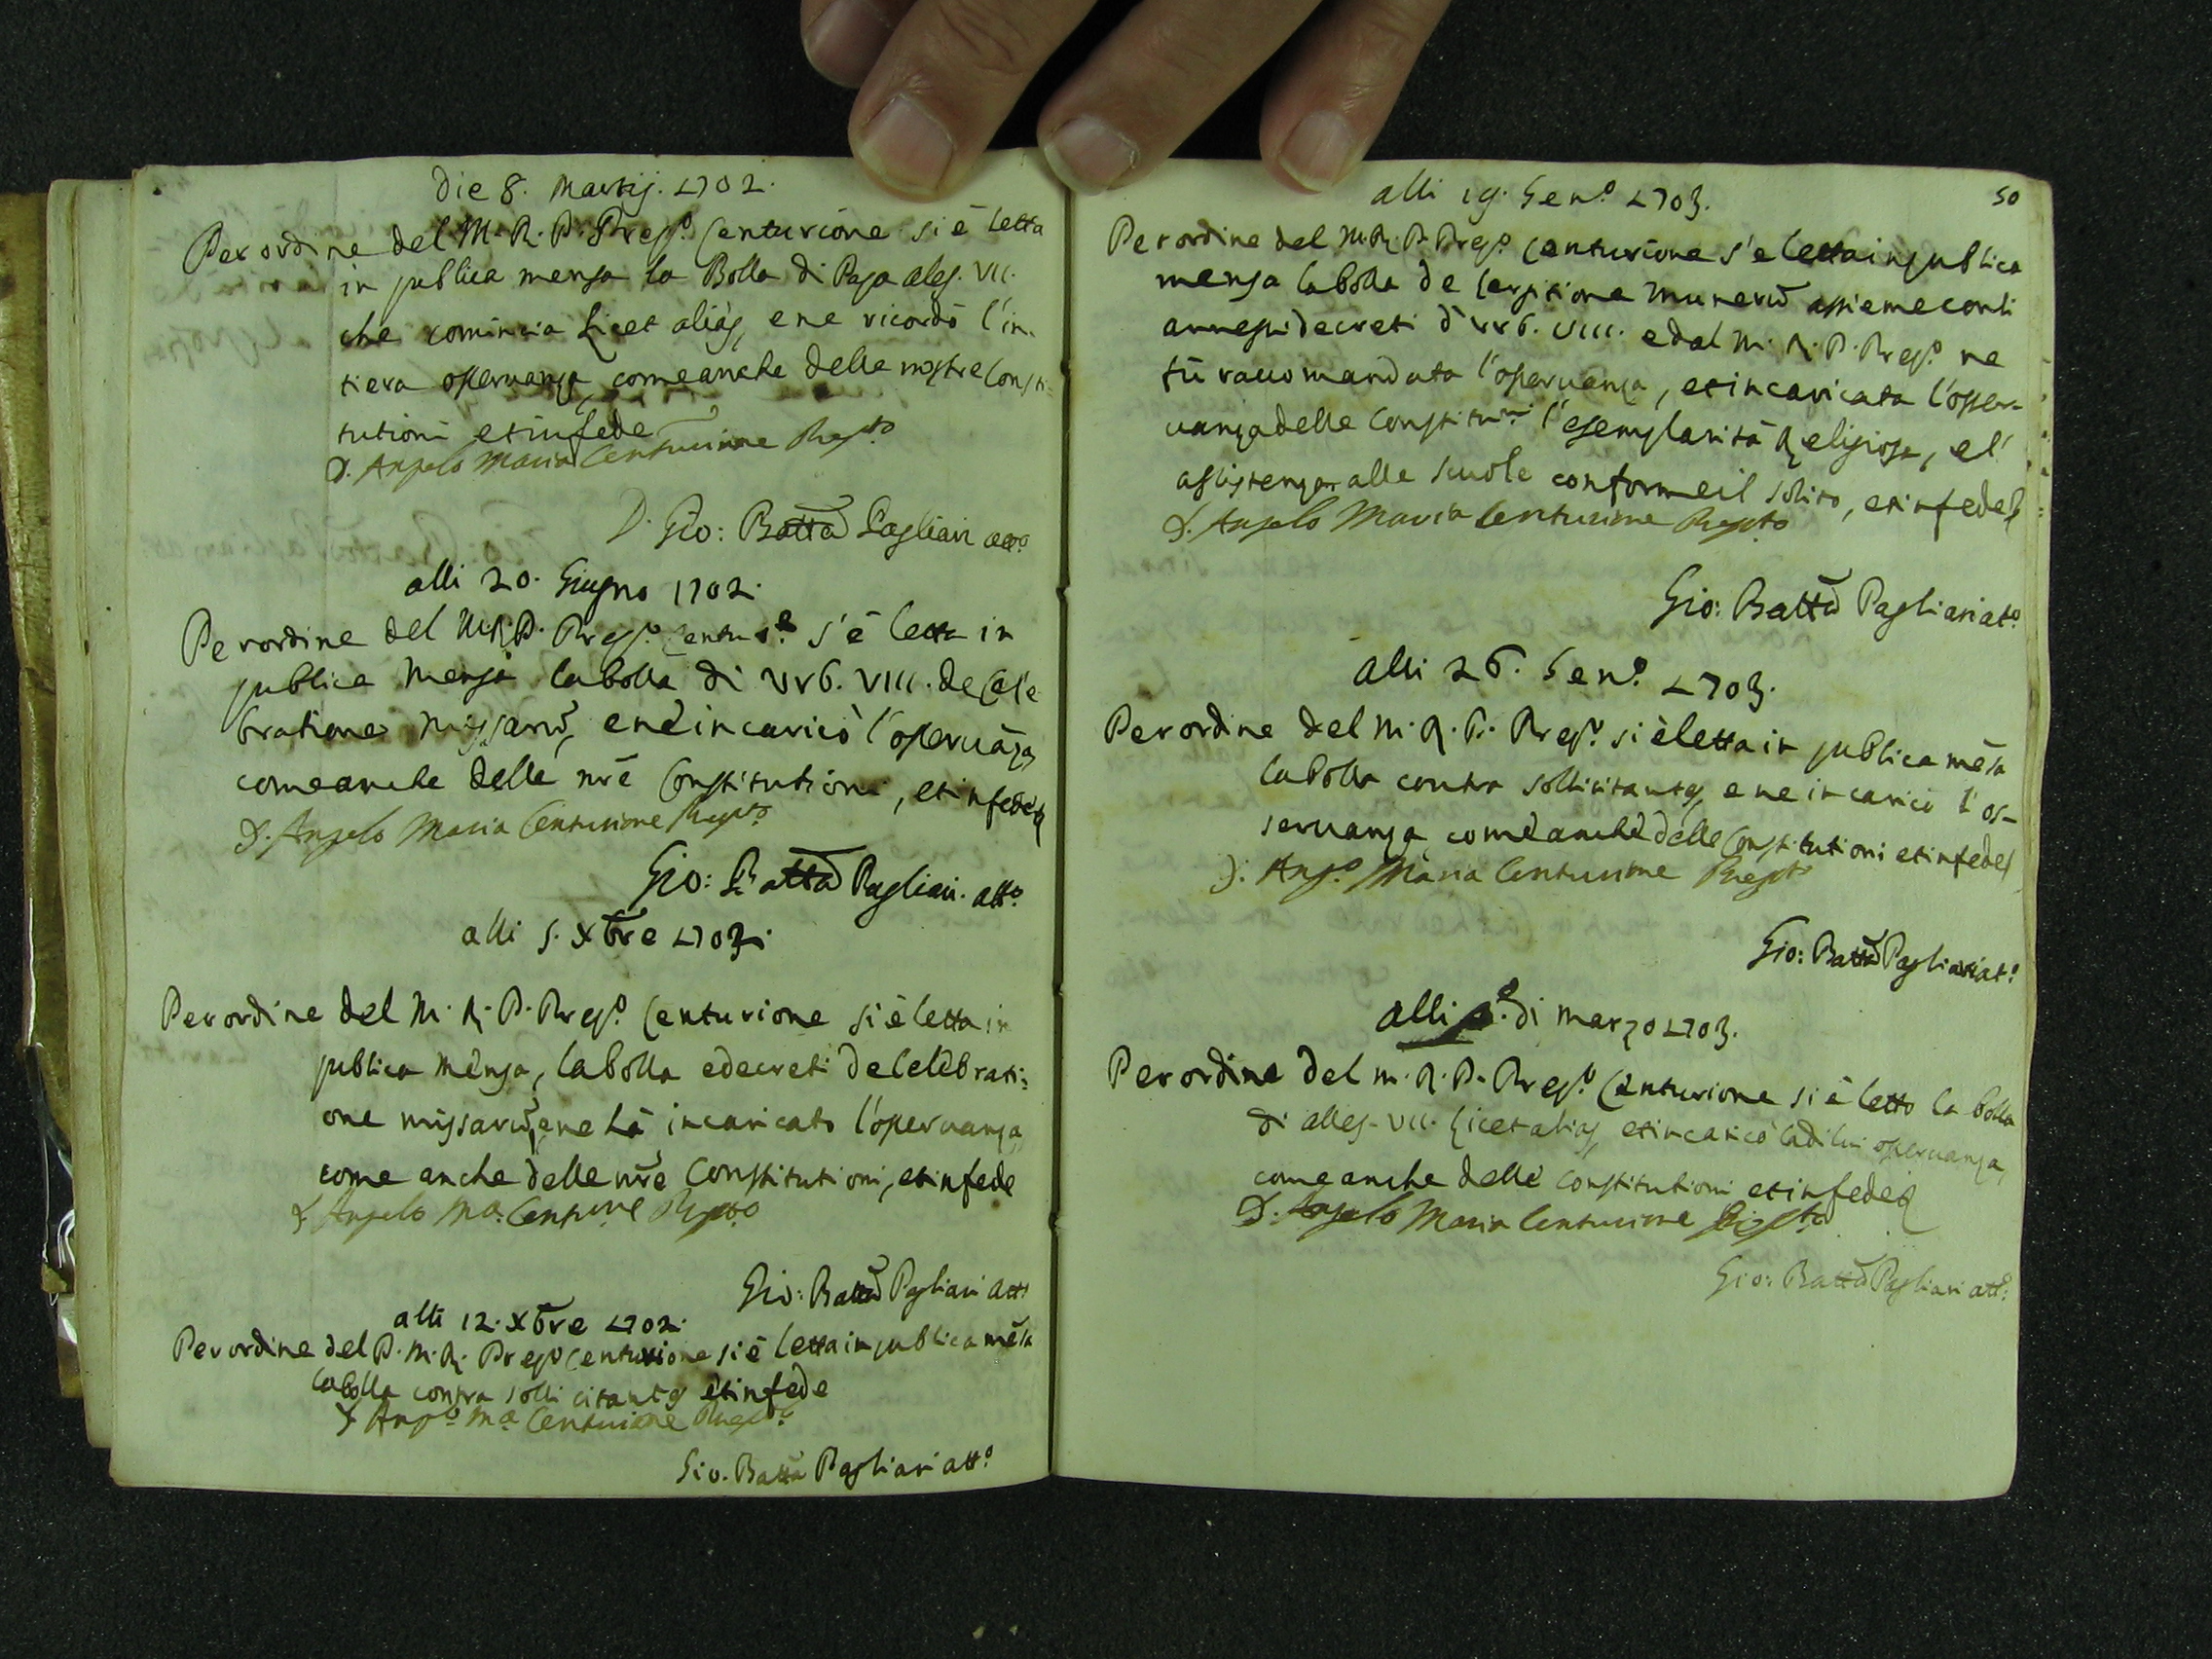 Die 8. Martij. 1702.
Per ordine del M. R. P. Prep.º Centurione si è letta
in publica mensa la Bolla di Papa Ales. VII.
che comincia Licet aliàs, e ne ricordò l'in=
tiera osservanza, come anche delle nostre Consti=
tutioni et in fede
D. Angelo Maria Centurione Prep.to
D. Gio: Batta Pagliari att.º
alli 20. Giugno 1702.
Per ordine del M. R. P. Prep.º Centur.e s'è letta in
publica mensa la bolla di Urb. VIII. de Cele
bratione Missarū, e ne incaricò l'osservāza
come anche delle nr̄e Constitutioni, et in fede
D. Angelo Maria Centurione Prep.to
Gio: Batta Pagliari. att.º
alli 5. Xbre 1702.
Per ordine del M. R. P. Prep.º Centurione si è letta in
publica mensa, la bolla e decreti de Celebrati=
one missarū, e ne hà incaricato l'osservanza
come anche delle nr̄e Constitutioni, et in fede
D. Angelo M.a Centurione Prep.to
Gio: Batta Pagliari att.º
alli 12. Xbre 1702.
Per ordine del P. M. R. Prep.º Centurione si è letta in publica mēsa
la bolla contra sollicitantes et in fede
D. Ang.º M.a Centurione Prep.to
Gio. Batta Pagliari att.º
50
alli 19. Gen.º 1703.
Per ordine del M. R. P. Prep.º Centurione s'è letta in publica
mensa la bolla de largitione munerū assieme con li
annessi decreti d'Urb. VIII. e dal M. R. P. Prep.º ne
fù raccomandata l'osservanza, et incaricata l'osser=
vanza delle Constitut.ni l'esemplarità Religiosa, e l'
assistenza alle scuole conforme il solito, et in fede
D. Angelo Maria Centurione Prep.to
Gio: Batta Pagliari att.º
alli 26. Gen.º 1703.
Per ordine del M. R. P. Prep.º si è letta in publica mēsa
la bolla contra sollicitantes, e ne incaricò l'os=
servanza, come anche delle Constitutioni et in fede
D. Ang.º Maria Centurione Prep.to
Gio: Batta Pagliari att.º
alli p.º di marzo 1703.
Per ordine del M. R. P. Prep.º Centurione si è letto la bolla
di Alles. VII. Licet aliàs, et incaricò la di lui osservanza,
come anche delle Constitutioni et in fede
D. Angelo Maria Centurione Prep.to
Gio: Batta Pagliari att.º